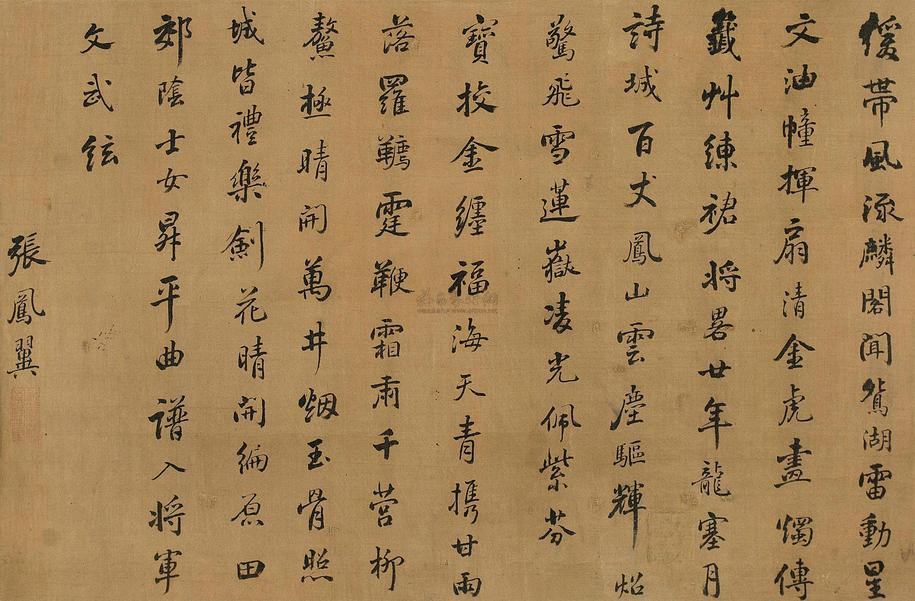 緩帶風流麟閣聞鴛湖雷動星
文油幢揮扇清金虎畫燭傳
籤艸練裙將畧廿年龍塞月
詩城百丈鳳山雲塵驅輝焰
驚飛雪蓮嶽凌光佩紫芬
寶校金纏福海天青攜甘雨
落羅韉霆鞭霜肅千營柳
鰲極晴開萬井烟玉骨照
城皆禮樂劍花晴開編原田
郊陰士女昇平曲譜入將軍
文武絃
張鳳翼